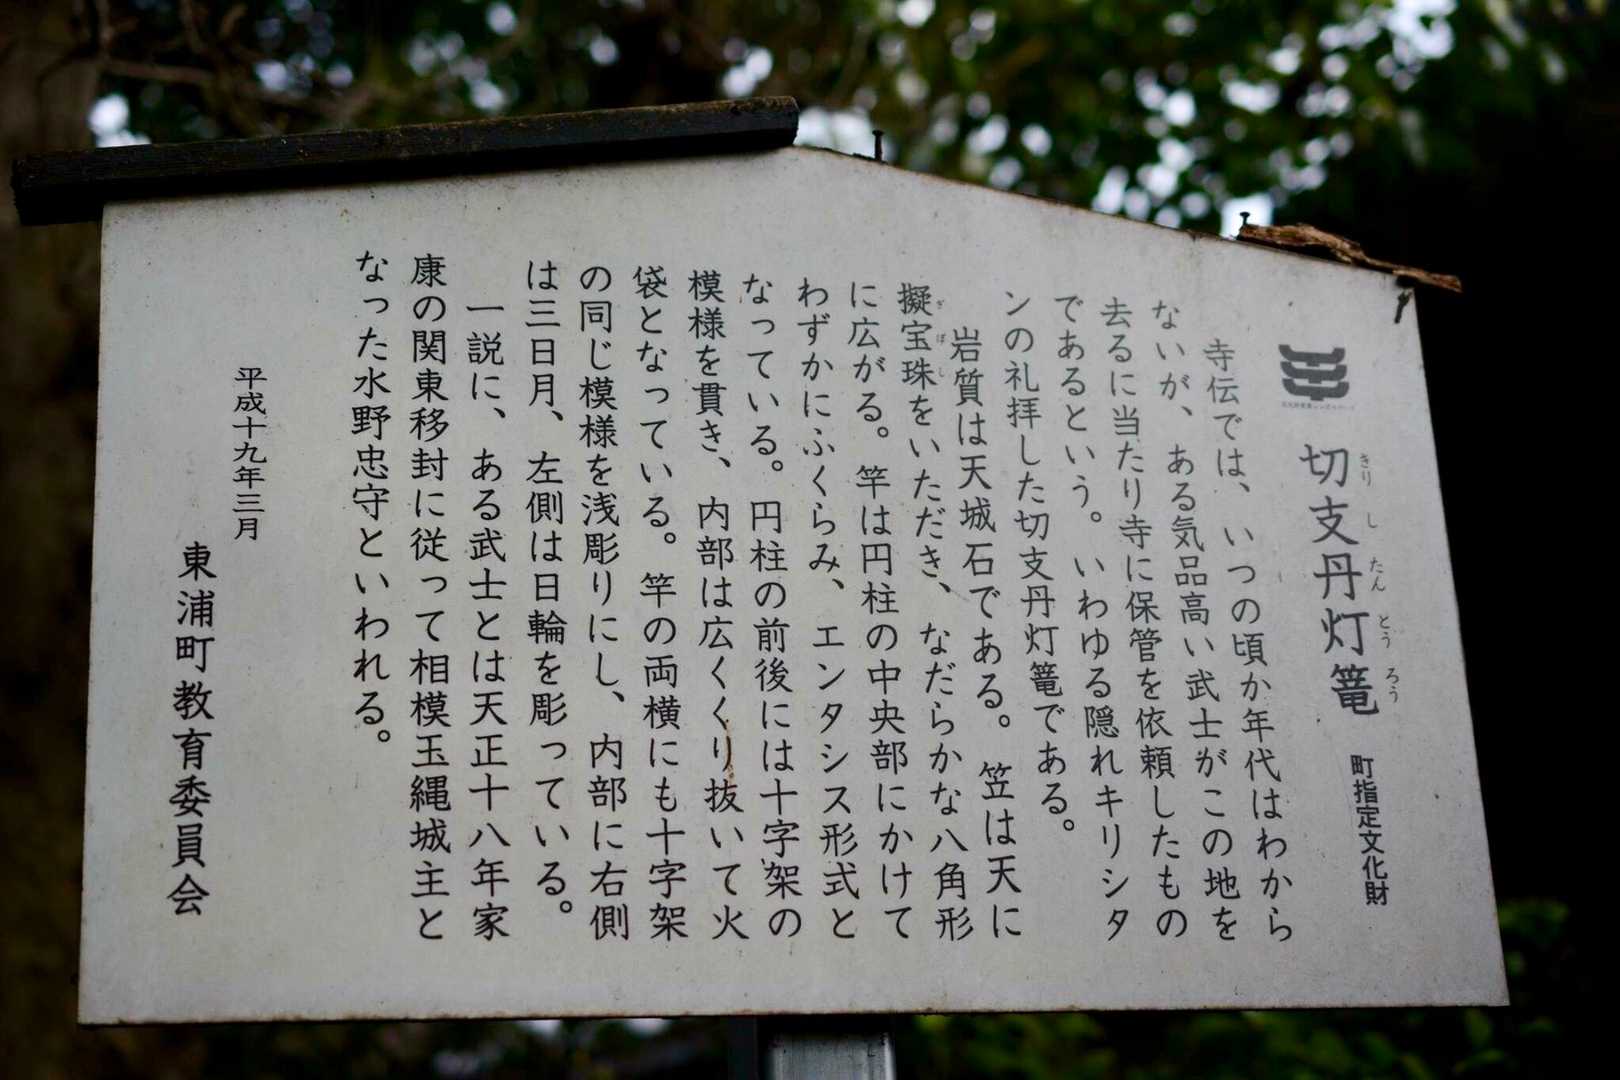 切支丹灯篭 町指定文化財
きり し たん とう ろう
寺伝では、いつの頃か年代はわから
ないが、ある気品高い武士がこの地を
去るに当たり寺に保管を依頼したもの
であるという。いわゆる隠れキリシタ
ンの礼拝した切支丹灯篭である。
岩質は天城石である。笠は天に
擬宝珠をいただき、なだらかな八角形
ぎ ぼ し
に広がる。竿は円柱の中央部にかけて
わずかにふくらみ、エンタシス形式と
なっている。円柱の前後には十字架の
模様を貫き、内部は広くくり抜いて火
袋となっている。竿の両横にも十字架
の同じ模様を浅彫りにし、内部に右側
は三日月、左側は日輪を彫っている。
一説に、ある武士とは天正十八年家
康の関東移封に従って相模玉縄城主と
なった水野忠守といわれる。
平成十九年三月
東浦町教育委員会